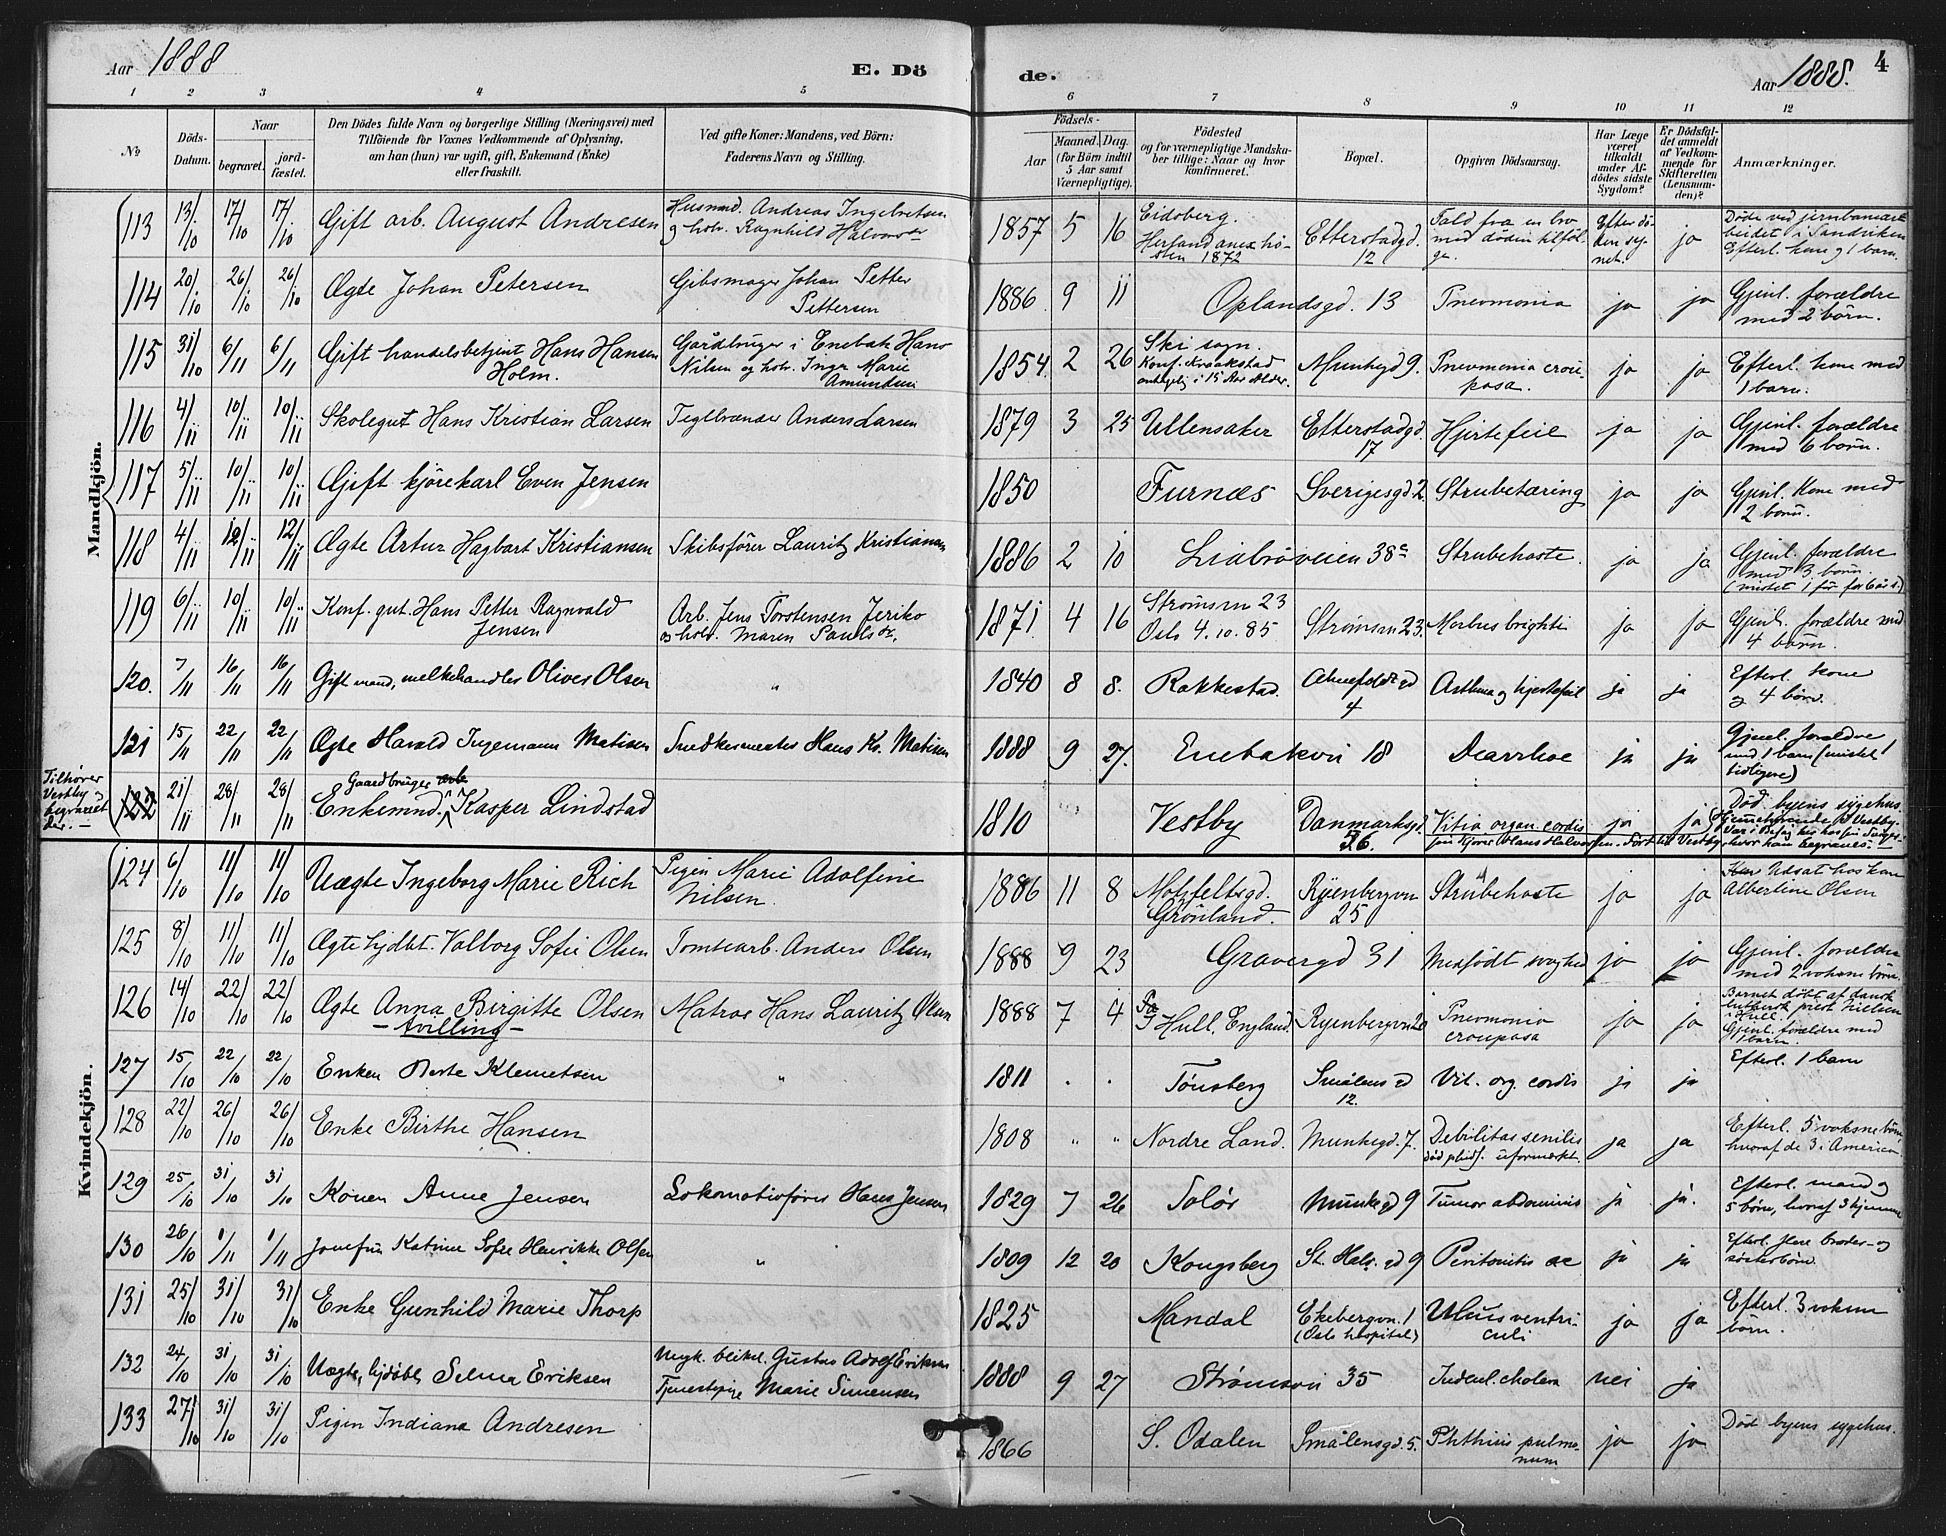 Aar 1888
E. Dö
de.
Aar 1888.
4
1 2 3 4 5 6 7 8 9 10 11 12
No.
Döds-Datum.
Naar
begravet.
jord-fæstet.
Den Dödes fulde Navn og borgerlige Stilling (Næringsvei) med
Tilföiende for Voxnes Vedkommende af Oplysning,
om han (hun) var ugift, gift, Enkemand (Enke)
eller fraskilt.
Ved gifte Koner: Mandens, ved Börn:
Faderens Navn og Stilling.
Födsels-
Aar
Maaned. Dag.
(for Börn indtil
5 Aar samt
Værnepligtige).
Födested
og for værnepligtige Mandska-
ber tillige: Naar og hvor
konfirmeret.
Bopæl.
Opgiven Dödsaarsag.
Har Læge
været
tilkaldt
under Af-
dödes sidste
Sygdom?
Er Dödsfal-
det anmeldt
af Vedkom-
mende for
Skifteretten
(Lensman-
den)?
Anmærkninger.
Mandkjön.
113 13/10 17/10 17/10 Gift arb. August Andresen Husmd. Andreas Ingebretsen
og hstr. Ragnhild Halvorsdr 1857 5 16 Eidsberg.
Herland anex hö-
sten 1872 Etterstadgd.
12 Fald fra en bro
med döden tilföl-
ge. Efter dö-
den sy-
net. ja Döde ved jernbanear-
beidet i Sandviken
Efterl. kone og 1 barn.
114 20/10 26/10 26/10 Ægte Johan Petersen Gibsmager Johan Petter
Pettersen 1886 9 11 Oplandsgd. 13 Pnevmonia ja ja Gjenl. forældre
med 2 börn.
115 31/10 6/11 6/11 Gift handelsbetjent Hans Hansen
Holm. Gårdbruger i Enebak Hans
Nilsen og hstr. Inger Marie
Amundsen 1854. 2 26 Ski sogn.
Konf. Kraakstad
antagelig i 15 Aars Alder. Munkegd 9. Pnevmonia crou-
posa. ja ja Efterl. kone med
1 barn.
116 4/11 10/11 10/11 Skolegut Hans Kristian Larsen Teglbrænder Anders Larsen 1879 3 25 Ullensaker Etterstadgd.
17 Hjertefeil ja ja Gjenl. forældre
med 6 börn.
117 5/11 10/11 10/11 Gift kjörekarl Even Jensen 1850 Furnæs Sverigesgd 2. Strubetæring ja ja Gjenl. Kone med
2 börn.
118 4/11 12/11 12/11 Ægte Artur Hagbart Kristiansen Skibsförer Lauritz Kristiansen 1886 2 10 Liabröveien 38c Strubehoste. ja ja Gjenl. forældre
med 3 börn.
(mistet 1 för
119 6/11 10/11 10/11 Konf. gut. Hans Petter Ragnvald
Jensen Arb. Jens Torstensen Jeriko
og hstr. Maren Paulsdr. 1871 4 16 Strömsvn 23
Oslo 4.10.85 Strömsvn 23. Morbus brighti ja ja Gjenl. forældre med
4 börn.
120. 7/11 16/11 16/11 Gift mand, melkehandler Oliver Olsen " 1840 8 8. Rakkestad. Ahnefeldtsgd
4 Asthma og hjertefeil ja ja Efterl. kone
og 4 börn.
121 15/11 22/11 22/11 Ægte Harald Ingemann Matisen Snedkermester Hans Kr. Matisen 1888 9 27. Enebakvn 18 Dearrhoe ja ja Gjenl. forældre
med 1 barn (mistet 1
tidligere)
Tilhörer
Vestby og
begravet
der. —
122 21/11 28/11 28/11 Gaardbruger arb
Enkemnd. Kasper Lindstad 1810 " Vestby Danmarksgd.
36. Vitia organ. cordis ja ja Död byens sygehus.
124 6/10 11/10 11/10 Uægte Ingeborg Marie Rich Pigen Marie Adolfine
Nilsen. 1886 11 8 Motzfeltsgd.
Grönland. Ryenbergvn
25 Strubehoste ja ja Udsat hos kone
Albertine Olsen
Kvindekjön.
125 8/10 11/10 11/10 Ægte hjdbt. Valborg Sofie Olsen Tomtearb. Anders Olsen 1888 9 23 Gravergd 31 Medfödt svaghed ja ja Gjenl. forældre
med 2 voksne börn.
126 14/10 22/10 22/10 Ægte Anna Birgitte Olsen
— tvilling — Matros Hans Lauritz Olsen 1888 7 4 I Hull, England. Ryenbergvn 20 Pnevmonia
crouposa ja ja Barnet döbt af dansk
luthersk prest Nielsen
i Hull.
Gjenl. forældre med
1 barn.
127 15/10 22/10 22/10 Enken Berte Klemetsen " 1811 . . Tönsberg Smålensgd
12. Vit. org. cordis ja ja Efterl. 1 barn
128 22/10 26/10 26/10 Enke Birthe Hansen 1808 " " Nordre Land. Munkegd. 7. Debilitas senilis
död pludsl. uformærkt. ja ja Efterl. 5 voksne börn
hvoraf de 3 i America
129 25/10 31/10 31/10 Konen Anne Jensen Lokomotivförer Hans Jensen 1829 7 26 Solör Munkegd 9 Tumor abdominis ja ja. Efterl. mand og
5 börn, hvoraf 3 hjemme
130 26/10 1/11 1/11 Jomfru Katrine Sofie Henrikke Olsen " 1809 12 20 Kongsberg St. Halv. gd 9 Peritonitis ac ja ja Efterl. flere broder- og
sösterbörn.
131 25/10 31/10 31/10 Enke Gunhild Marie Thorp 1825 Mandal Ekebergvn. 1
(Oslo hospital) Ulcus ventri-
culi ja ja Efterl. 3 voksne
börn.
132 24/10 31/10 31/10 Uægte, hjdöbt Selma Eriksen Ungk. bliksl. Gustav Adolf Eriksen
Tjenestepige Marie Simensen 1888 9 27 Strömsvn 35 Indenl. cholera nei ja
133 27/10 31/10 31/10 Pigen Indiana Andresen 1866 S. Odalen Smålensgd. 5. Phthisis pulmo-
num ja ja Död byens sygehus.